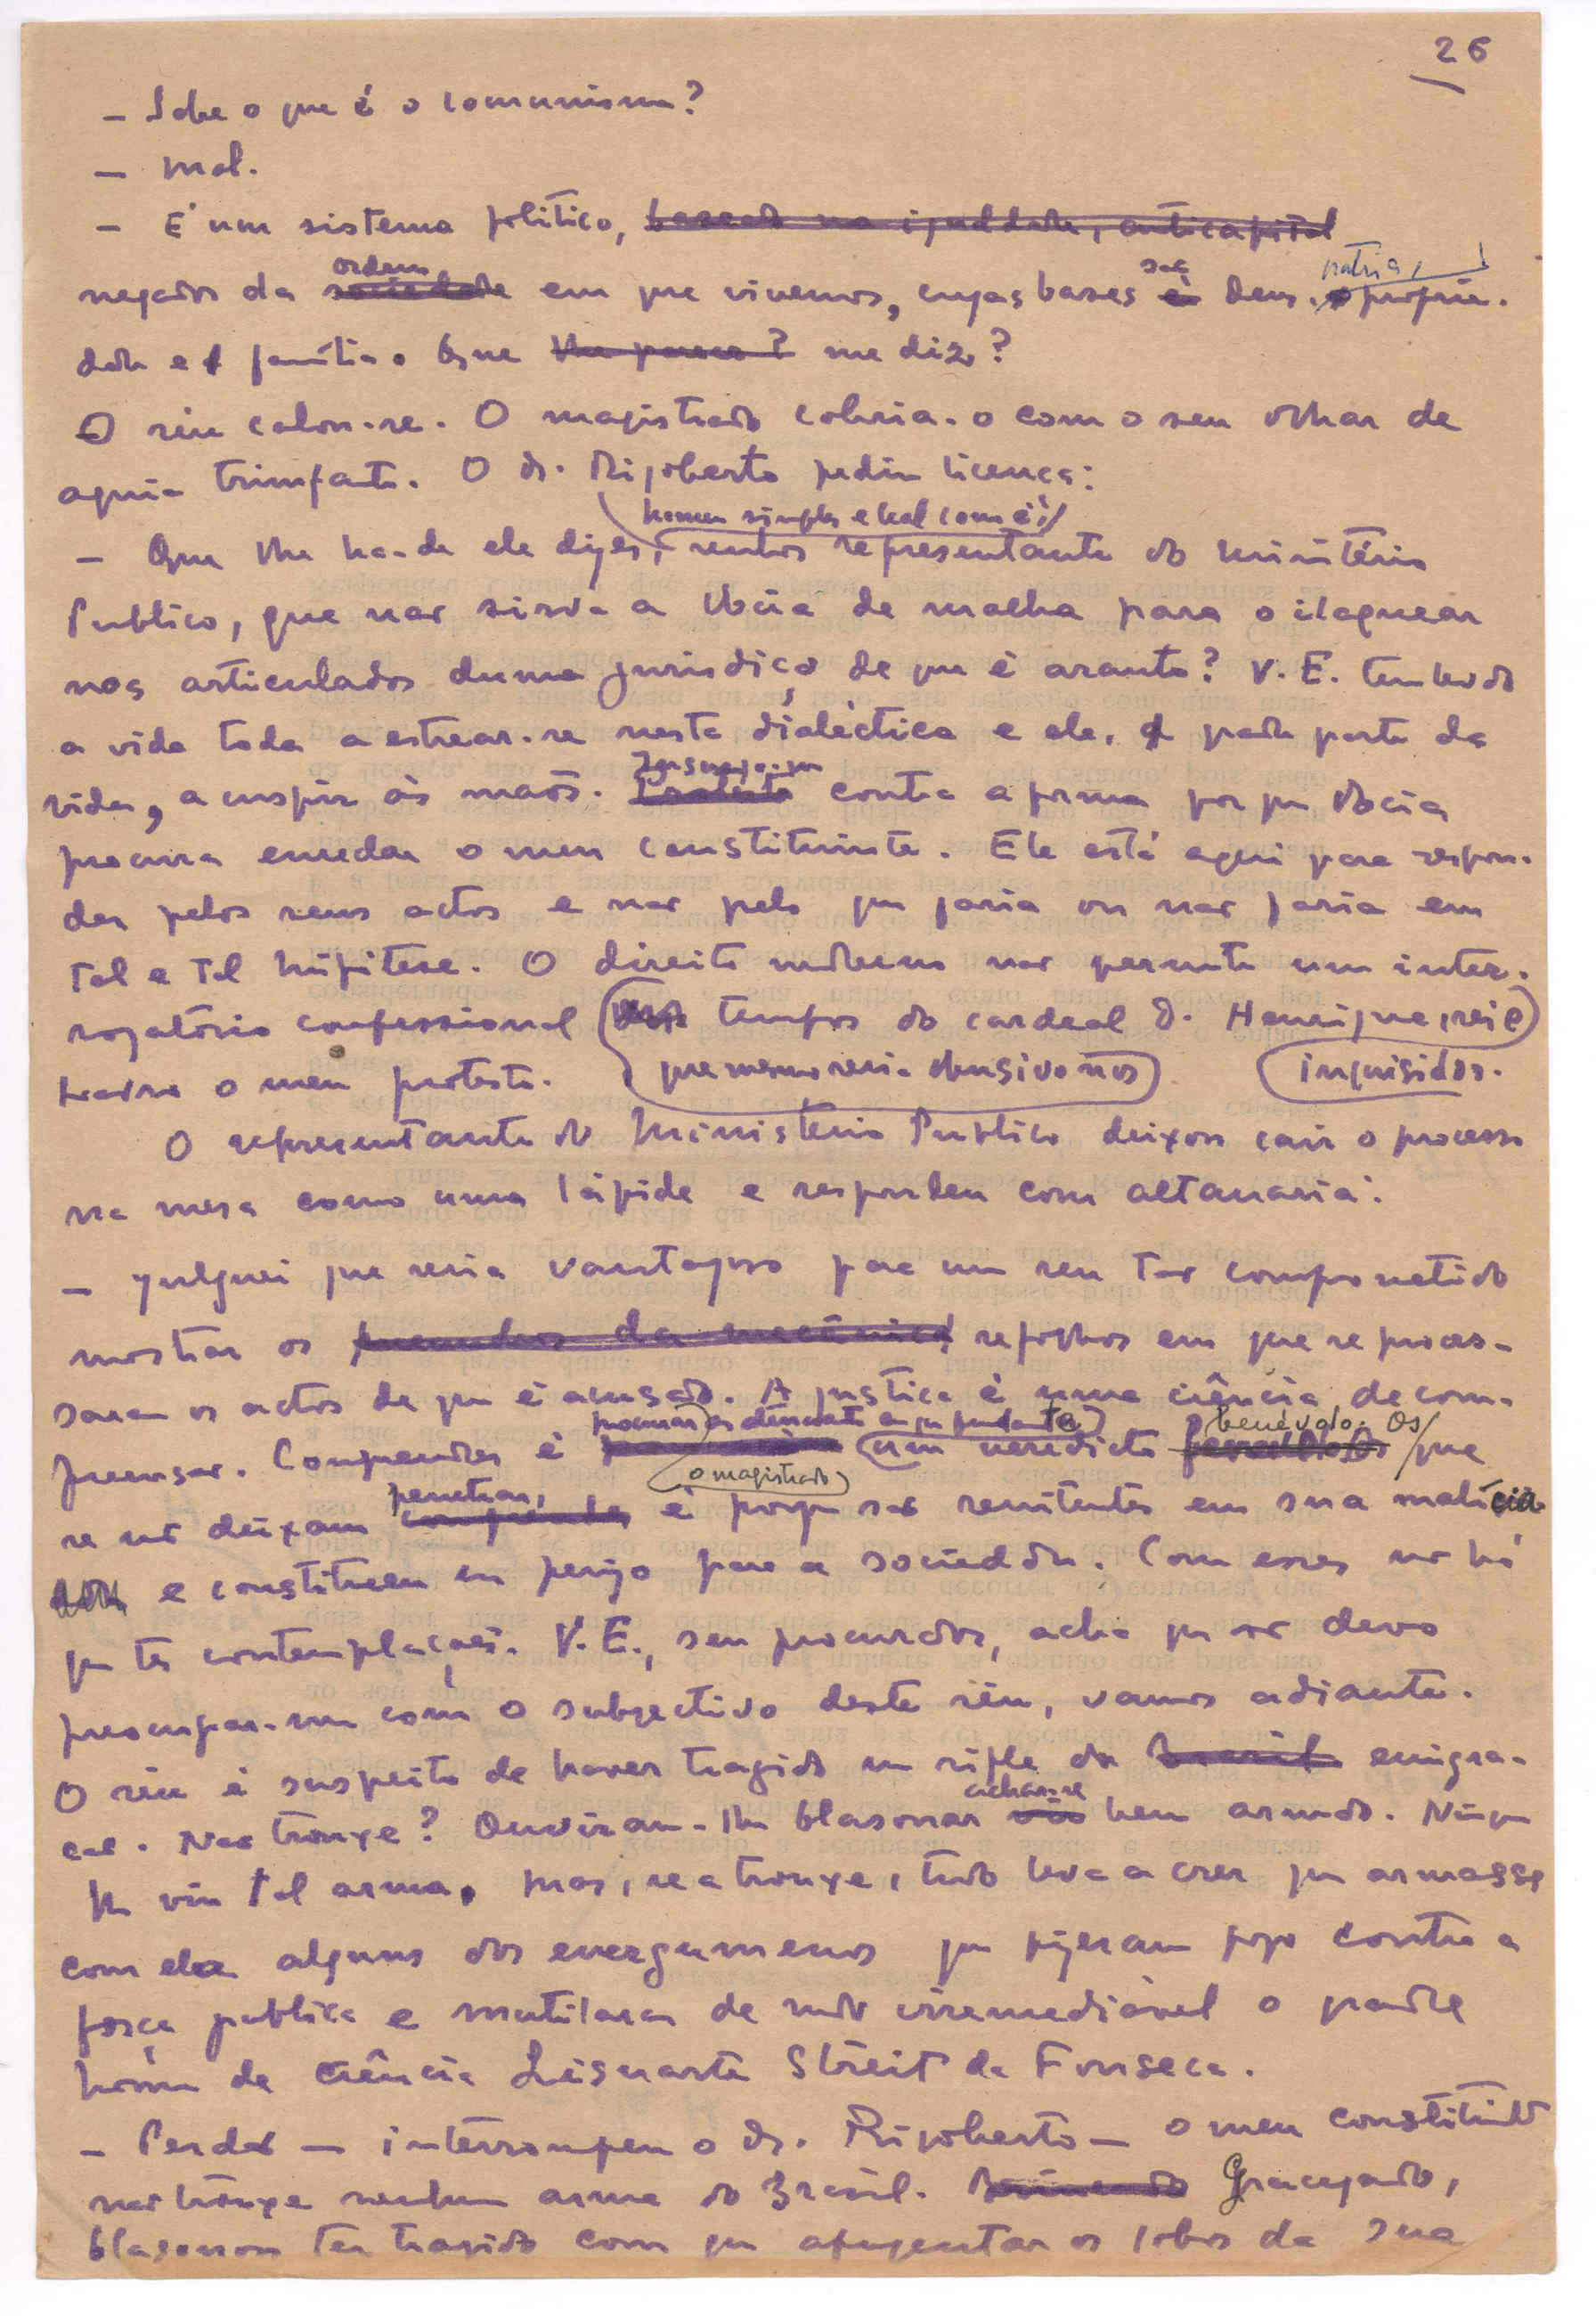 26
— Sabe o que é o comunismo?
— Mal.
— É um sistema politico, baseado na igualdade, anticapital
ordem são patria,
negador da sociedade em que vivemos, cujas bases é Deus, proprie-
dade e familia. Que lhe parece? me diz?
O réu calou-se. O magistrado cobria-o com o seu olhar de
aguia triunfante. O dr. Rigoberto pediu licença:
homem simples e leal como é,
— Que lhe ha-de ele dizer, senhor representante do Ministério
Publico, que nao sirva a Vocia de malha para o ilaquear
nos articulados duma jurisdiçao de que é arauto? V. E. tem levado
a vida toda a estrear-se nesta dialéctica e ele, grande parte da
Insurjo-me
vida, a cuspir às maos. Protesto contra a forma por que Vocia
procura enredar o meu constituinte. Ele está aqui para respon-
der pelos seus actos e nao pelo que faria ou nao faria em
tal e tal hipitese. O direito moderno nao permite um inter-
rogatório confessional dos tempos do cardeal D. Henrique, rei e
lavro o meu protesto. que mesmo seria abusivo nos inquisidor.
O representante do Ministério Publico deixou cair o processo
na mesa como uma lápide e respondeu com altanaria:
— Julguei que seria vantajoso para um reu tao comprometido
mostrar os meandros da mecânica refolhos em que se proces-
saram os actos de que é acusado. A justiça é uma ciência de com-
procurar a atenuante em que fundamentar benévolo. Os
preensao. Compreender é um veredicto que
penetrar, o magistrado
se nao deixam compreender é porque sao renitentes em sua malícia
e constituem um perigo para a sociedade. Com esses nao há
que ter contemplaçoes. V. E., seu procurador, acha que nao devo
preocupar-me com o subjectivo deste réu, vamos adiante.
O réu é suspeito de haver trazido um rifle do Brasil emigra-
achar-se
cao. Nao trouxe? Ouviram-lhe blasonar bem armado. Ninguem
lhe viu tal arma, mas, se a trouxe, tudo leva a crer que armasse
com ela alguns dos energumenos que fizeram fogo contra a
força publica e mutilaram de modo irremediável o grande
homem de ciência Lisuarte Streit da Fonseca.
— Perdao — interrompeu o dr. Rigoberto — o meu constituinte
nao trouxe nenhuma arma do Brasil. Gracejando,
blasonou ter trazido com que afugentar os lobos da sua